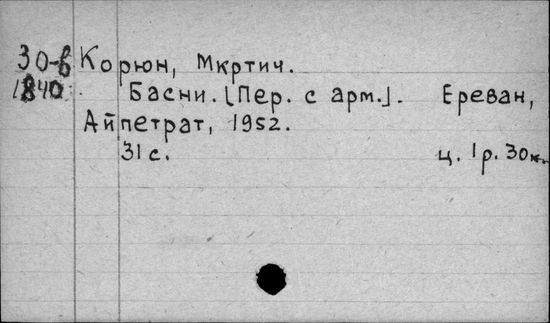 30-в Корюн, Мкртич.
1840 Басни. [Пер. с арм.]. Ереван,
Айпетрат, 1952.
31 с. ц. 1 р. 30 к.